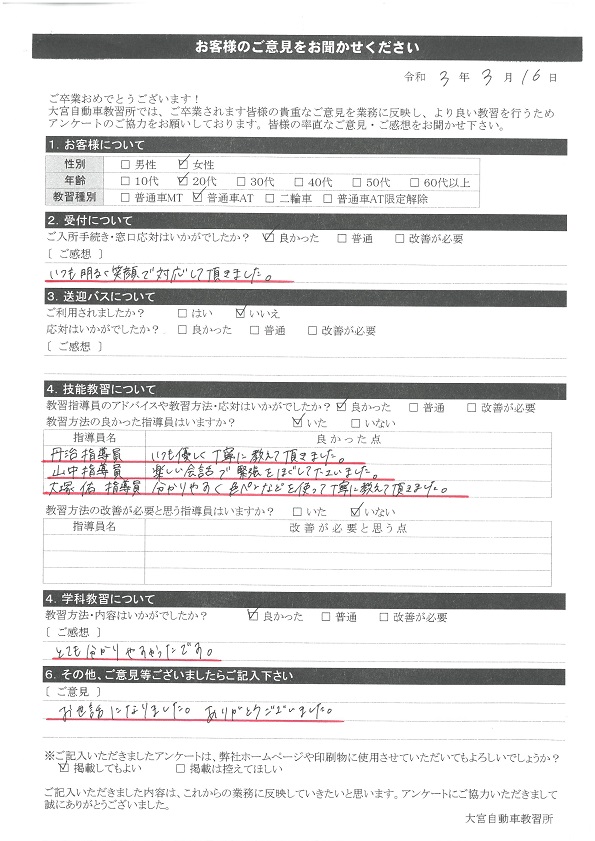 お客様のご意見をお聞かせください
令和 3 年 3 月 16 日
ご卒業おめでとうございます！
大宮自動車教習所では、ご卒業されます皆様の貴重なご意見を業務に反映し、より良い教習を行うため
アンケートのご協力をお願いしております。皆様の率直なご意見・ご感想をお聞かせ下さい。
1. お客様について
性別 □ 男性 ☑ 女性
年齢 □ 10代 ☑ 20代 □ 30代 □ 40代 □ 50代 □ 60代以上
教習種別 □ 普通車MT ☑ 普通車AT □ 二輪車 □ 普通車AT限定解除
2. 受付について
ご入所手続き・窓口応対はいかがでしたか？ ☑ 良かった □ 普通 □ 改善が必要
［ ご感想 ］
いつも明るく笑顔で対応して頂きました。
3. 送迎バスについて
ご利用されましたか？ □ はい ☑ いいえ
応対はいかがでしたか？ □ 良かった □ 普通 □ 改善が必要
［ ご感想 ］
4. 技能教習について
教習指導員のアドバイスや教習方法・応対はいかがでしたか？ ☑ 良かった □ 普通 □ 改善が必要
教習方法の良かった指導員はいますか？ ☑ いた □ いない
指導員名 良かった点
丹治指導員 いつも優しく丁寧に教えて頂きました。
山中指導員 楽しい会話で緊張をほぐして下さいました。
大塚佑 指導員 分かりやすく色ペンなどを使って丁寧に教えて頂きました。
教習方法の改善が必要と思う指導員はいますか？ □ いた ☑ いない
指導員名 改善が必要と思う点
4. 学科教習について
教習方法・内容はいかがでしたか？ ☑ 良かった □ 普通 □ 改善が必要
［ ご感想 ］
とても分かりやすかったです。
6. その他、ご意見等ございましたらご記入下さい
［ ご意見 ］
お世話になりました。 ありがとうございました。
※ご記入いただきましたアンケートは、弊社ホームページや印刷物に使用させていただいてもよろしいでしょうか？
☑ 掲載してもよい □ 掲載は控えてほしい
ご記入いただきました内容は、これからの業務に反映していきたいと思います。アンケートにご協力いただきまして
誠にありがとうございました。
大宮自動車教習所